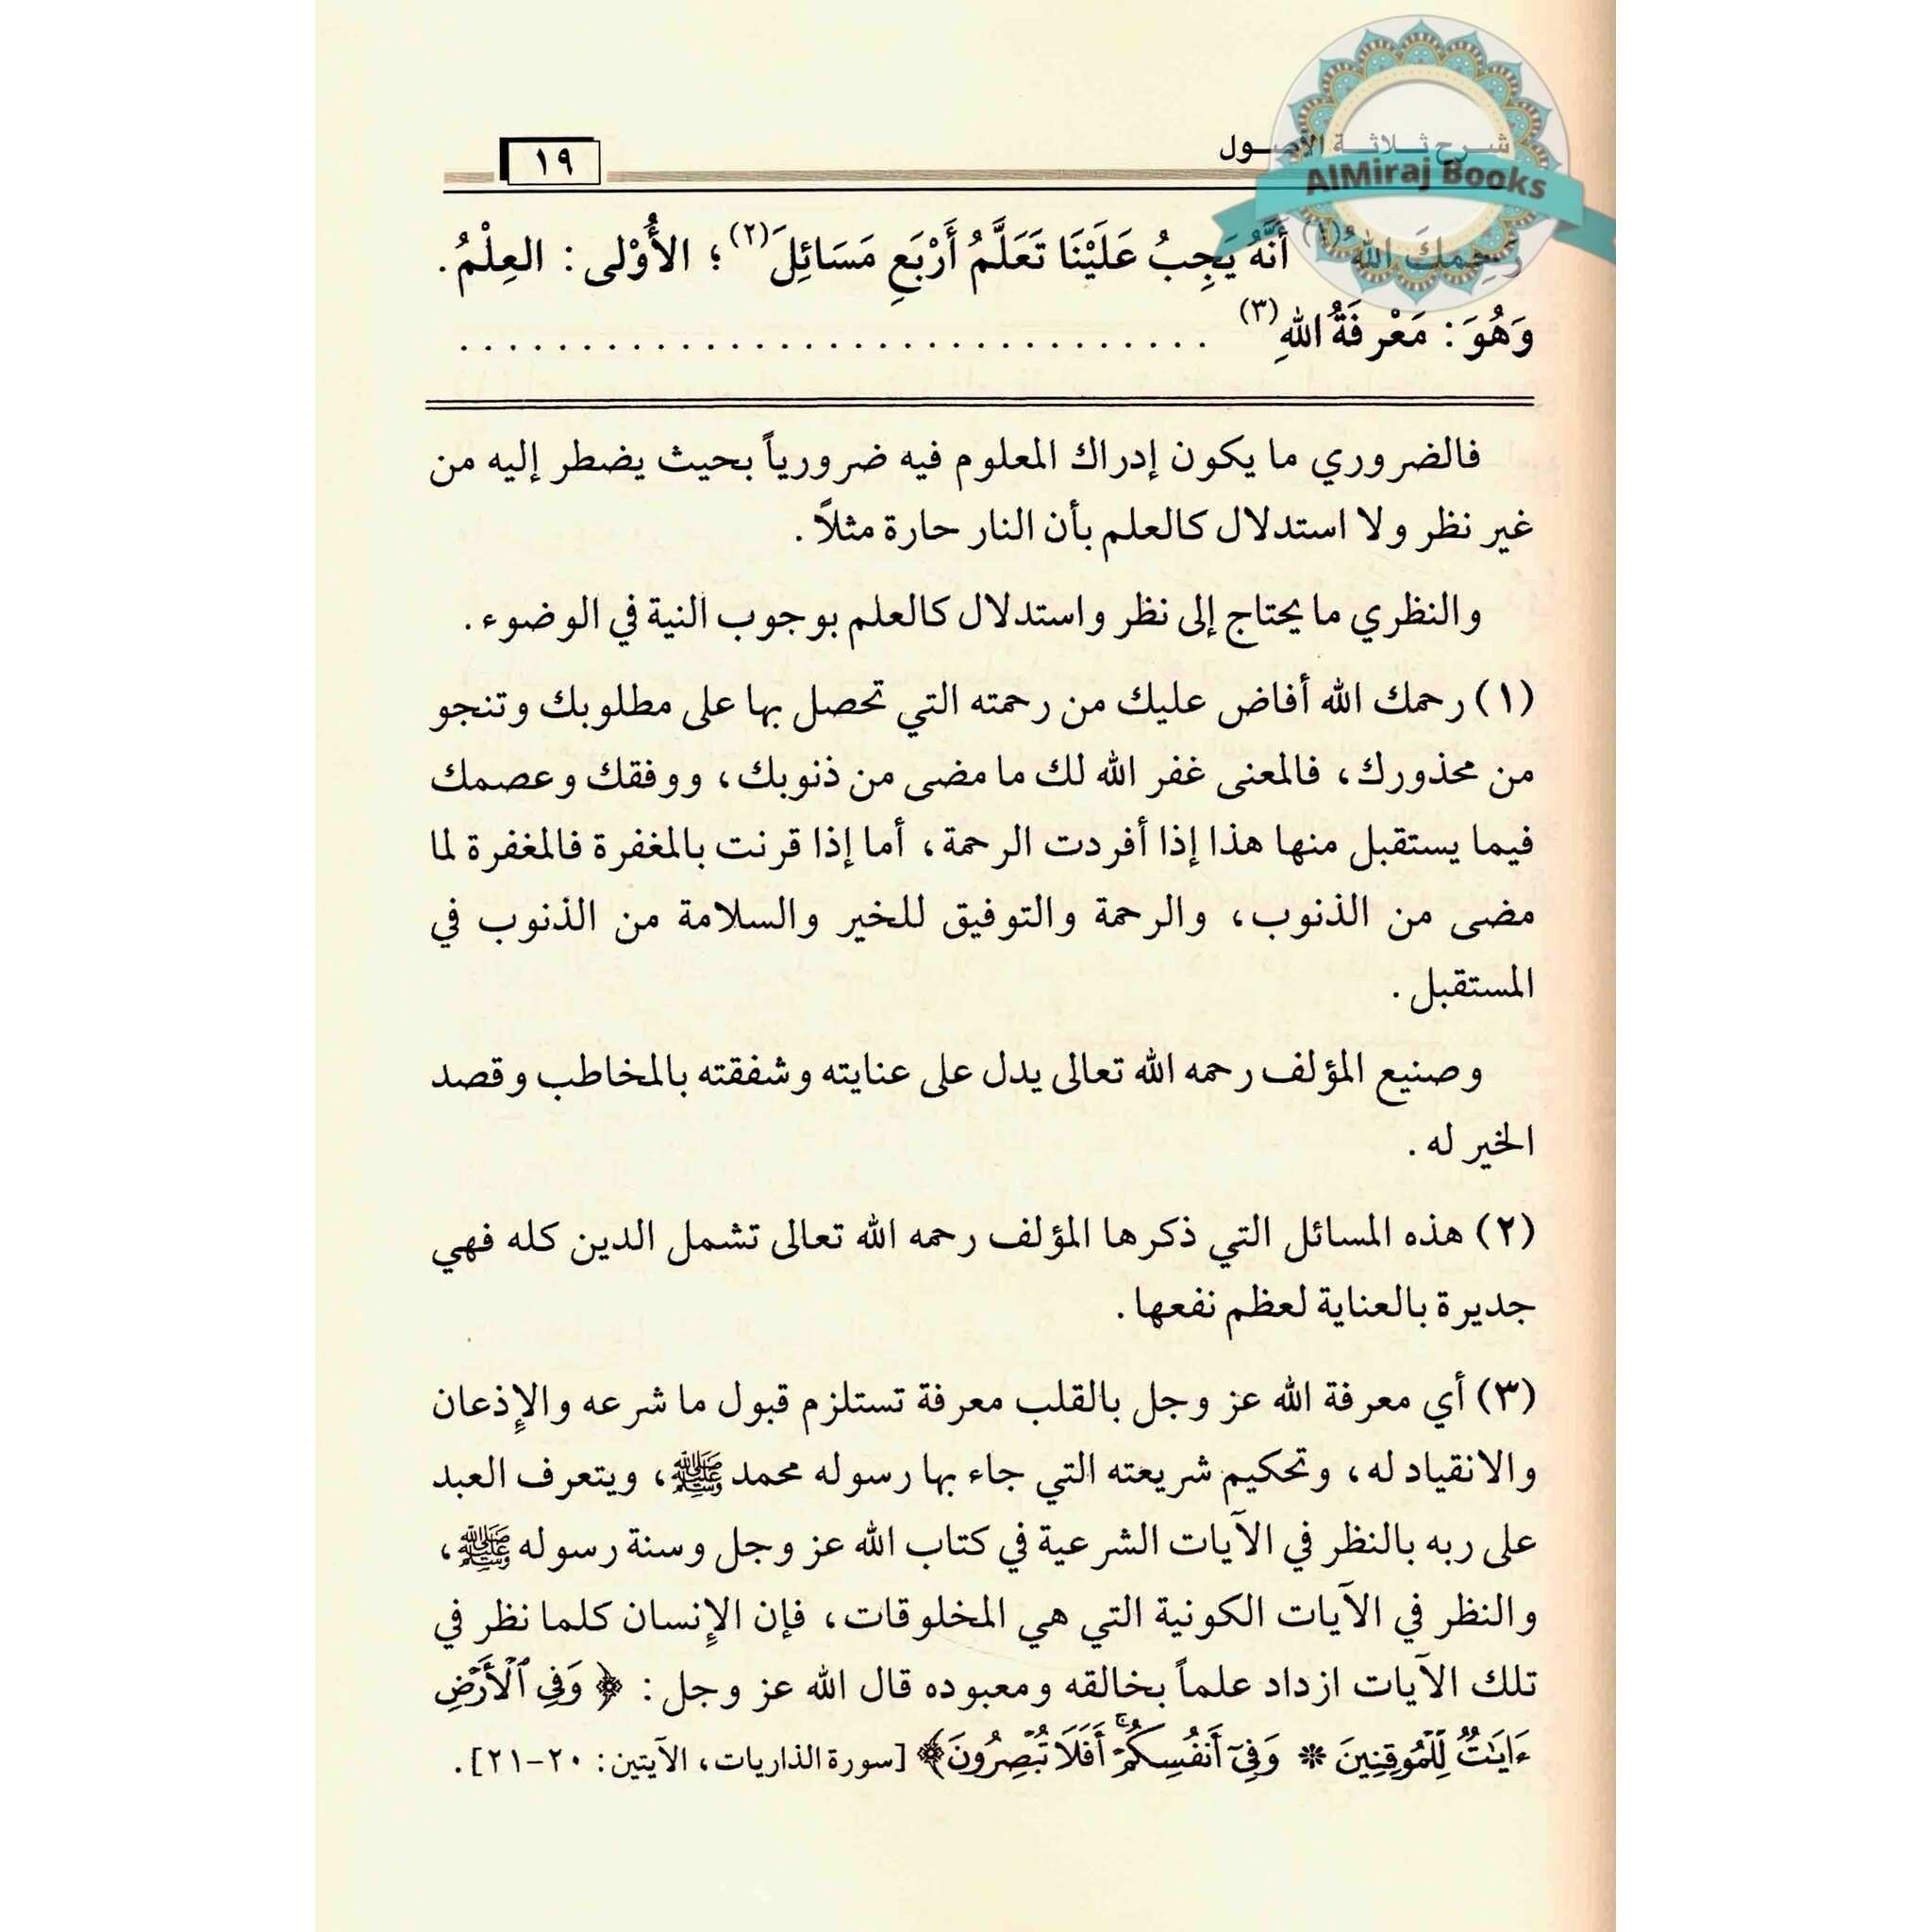 شرح ثلاثة الأصول
١٩
AlMiraj Books
رَحِمكَ اللهُ(١) أَنَّهُ يَجِبُ عَلَيْنَا تَعَلَّمُ أَرْبَعِ مَسَائِلَ(٢)؛ الأُوْلى: العِلْمُ.
وَهُوَ: مَعْرِفَةُ اللهِ(٣) . . . . . . . . . . . . . . . . . . . . . . . . . . . . . . .
فالضروري ما يكون إدراك المعلوم فيه ضرورياً بحيث يضطر إليه من
غير نظر ولا استدلال كالعلم بأن النار حارة مثلاً.
والنظري ما يحتاج إلى نظر واستدلال كالعلم بوجوب النية في الوضوء.
(١) رحمك الله أفاض عليك من رحمته التي تحصل بها على مطلوبك وتنجو
من محذورك، فالمعنى غفر الله لك ما مضى من ذنوبك، ووفقك وعصمك
فيما يستقبل منها هذا إذا أفردت الرحمة، أما إذا قرنت بالمغفرة فالمغفرة لما
مضى من الذنوب، والرحمة والتوفيق للخير والسلامة من الذنوب في
المستقبل.
وصنيع المؤلف رحمه الله تعالى يدل على عنايته وشفقته بالمخاطب وقصد
الخير له.
(٢) هذه المسائل التي ذكرها المؤلف رحمه الله تعالى تشمل الدين كله فهي
جديرة بالعناية لعظم نفعها.
(٣) أي معرفة الله عز وجل بالقلب معرفة تستلزم قبول ما شرعه والإذعان
والانقياد له، وتحكيم شريعته التي جاء بها رسوله محمد ﷺ، ويتعرف العبد
على ربه بالنظر في الآيات الشرعية في كتاب الله عز وجل وسنة رسوله ﷺ،
والنظر في الآيات الكونية التي هي المخلوقات، فإن الإنسان كلما نظر في
تلك الآيات ازداد علماً بخالقه ومعبوده قال الله عز وجل: ﴿وَفِي ٱلْأَرْضِ
ءَايَٰتٌ لِّلْمُوقِنِينَ * وَفِيٓ أَنفُسِكُمْ ۚ أَفَلَا تُبْصِرُونَ﴾ [سورة الذاريات، الآيتين: ٢٠-٢١].